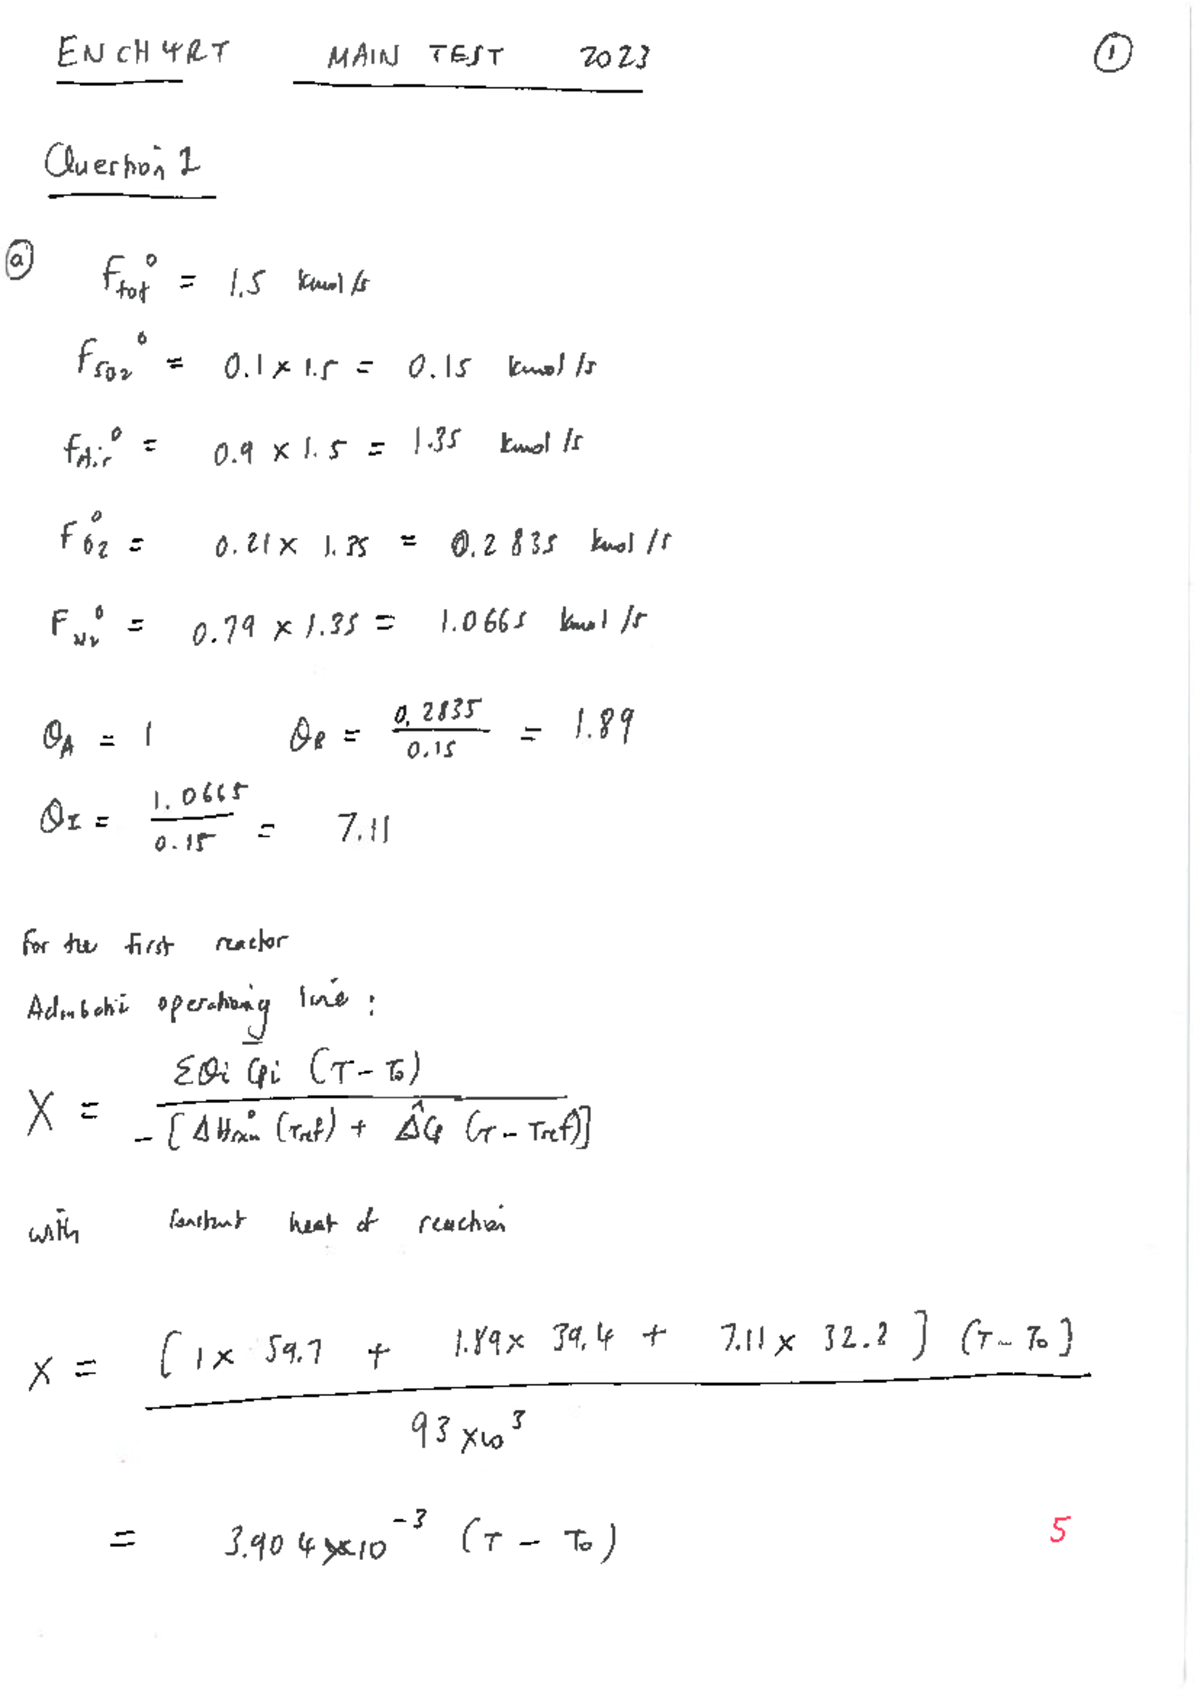 ENCH4RT MAIN TEST 2023 ①
Question 1
ⓐ F_tot° = 1.5 kmol/s
F_SO2° = 0.1 × 1.5 = 0.15 kmol/s
F_Air° = 0.9 × 1.5 = 1.35 kmol/s
F_O2° = 0.21 × 1.35 = 0.2835 kmol/s
F_N2° = 0.79 × 1.35 = 1.0665 kmol/s
θ_A = 1 θ_B = 0.2835 / 0.15 = 1.89
θ_I = 1.0665 / 0.15 = 7.11
For the first reactor
Adiabatic operating line :
X = Σθi Cpi (T - T₀) / -[ΔHrxn° (Tref) + ΔĈp (T - Tref)]
with constant heat of reaction
X = [1 × 59.7 + 1.89 × 39.4 + 7.11 × 32.2] (T - T₀) / 93 × 10³
= 3.904 × 10⁻³ (T - T₀) 5